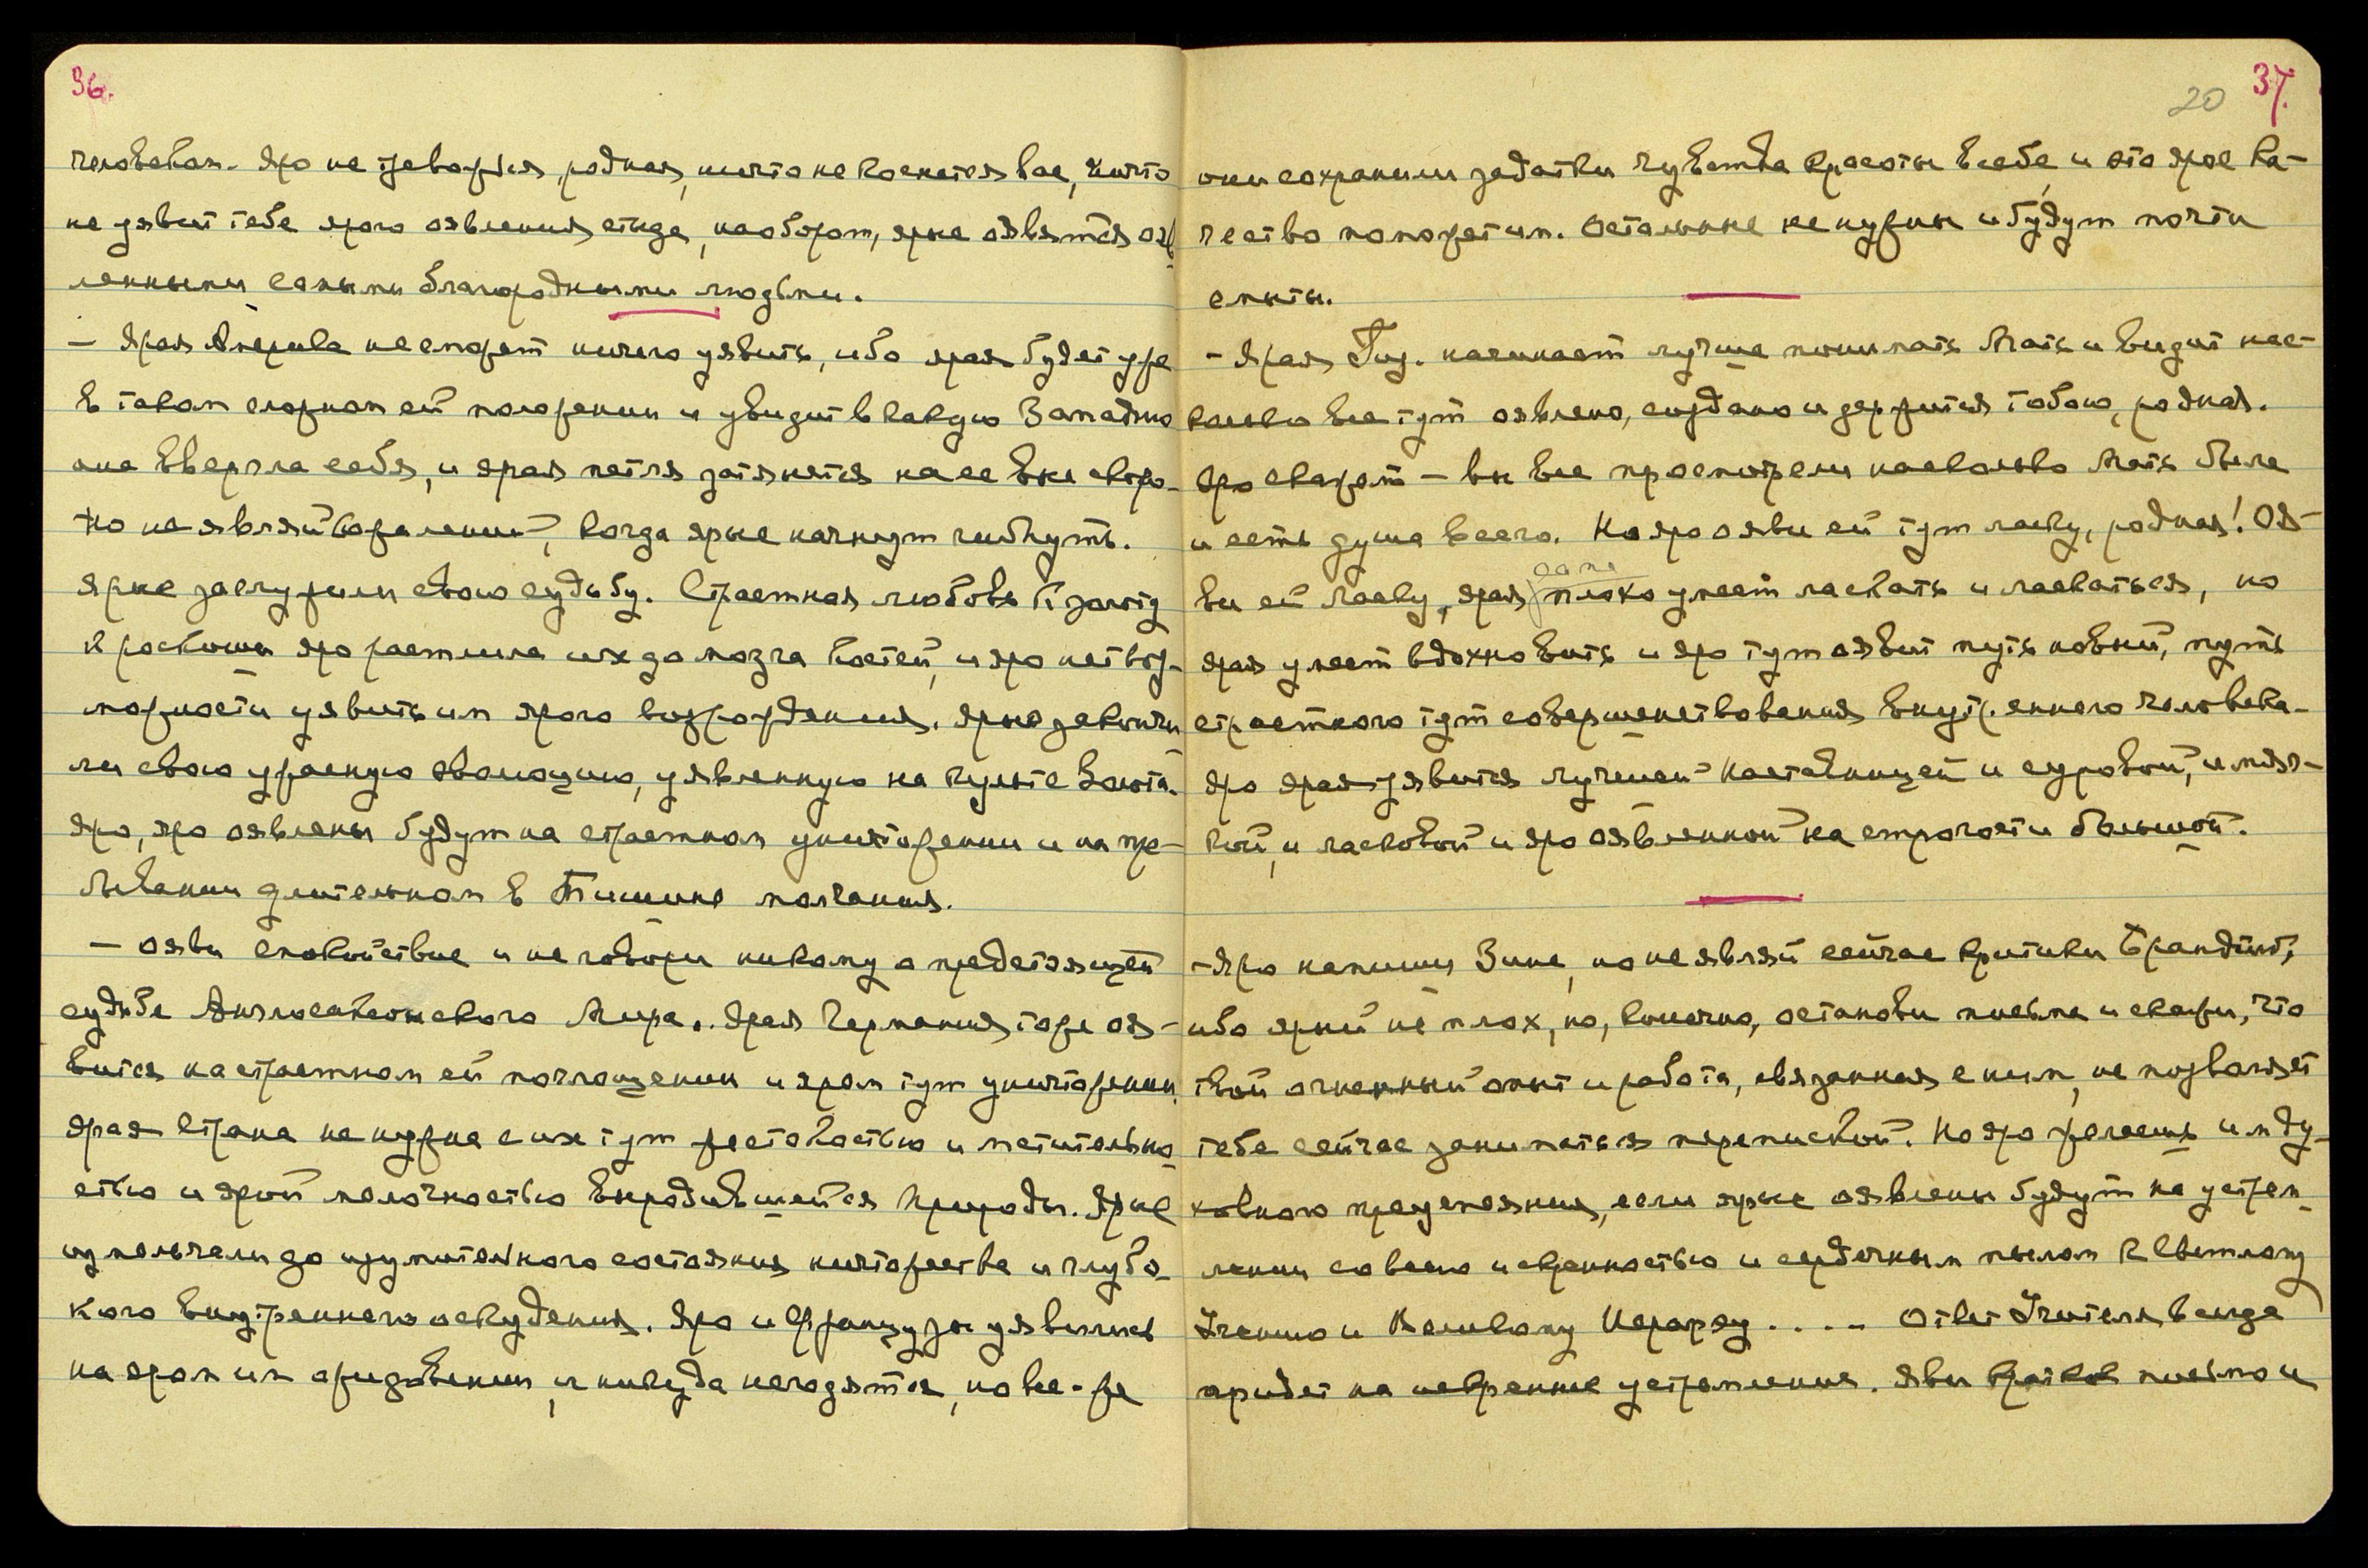 36.
человекам. Яро не тревожься, родная, ничто не коснется вас, ничто
не уявит тебе ярого оявления стыда, наоборот, ярые оявятся ояв-
ленными самыми благородными людьми.
— Ярая Америка не сможет ничего уявить, ибо ярая будет уже
в таком сложном ей положении и увидит в какую Западню
она ввергла себя, и ярая петля затянется на ее вые скоро.
Но не являй сожалений, когда ярые начнут гибнуть.
Ярые заслужили свою судьбу. Страстная любовь к золоту
к роскоши яро растлила их до мозга костей, и яро нет воз-
можности уявить им ярого возрождения. Ярые закончи-
ли свою ужасную эволюцию, уявленную на культе Золота.
Яро, яро оявлены будут на страстном уничтожении и на пре-
бывании длительном в Тишине молчания.
— Ояви спокойствие и не говори никому о предстоящей
судьбе Англосаксонского Мира. Ярая Германия тоже оя-
вится на страстном ей поглощении и яром тут уничтожении.
Ярая Страна не нужна с их тут жестокостью и мстительно-
стью и ярой мелочностью выродившейся Природы. Ярые
измельчали до изумительного состояния ничтожества и глубо-
кого внутреннего оскудения. Яро и Французы уявились
на яром им и никуда не годятся, но все-же
37.
20
они сохранили задатки чувства красоты в себе, и это ярое ка-
чество поможет им. Остальные не нужны и будут почти
смыты.
- Ярая Гиу. начинает лучше понимать Мать и видит нас-
колько все тут оявлено, создано и держится тобою, родная.
Яро скажет — вы все просмотрели насколько Мать была
и есть душа всего. Но яро ояви ей тут ласку, родная! Оя-
ви ей ласку, ярая сама плохо умеет ласкать и ласкаться, но
ярая умеет вдохновить и яро тут оявит путь новый, путь
страстного тут совершенствования внутр. еннего человека.
Яро ярая уявится лучшей Наставницей и суровой, и мяг-
кой, и ласковой и яро оявленной на строгости большой.
- Яро напиши Зине, но не являй сейчас критики Брандт,
ибо ярый не плох, но, конечно, останови письма и скажи, что
твой огненный опыт и работа, связанная с ним, не позволяет
тебе сейчас заниматься перепиской. Но яро желаешь им ду-
ховного преуспеяния, если ярые оявлены будут на устрем-
лении со всею искренностью и сердечным пылом к Светлому
Учению и Великому Иерарху .... Ответ Учителя всегда
придет на искренние устремления. Яви краткое письмо и